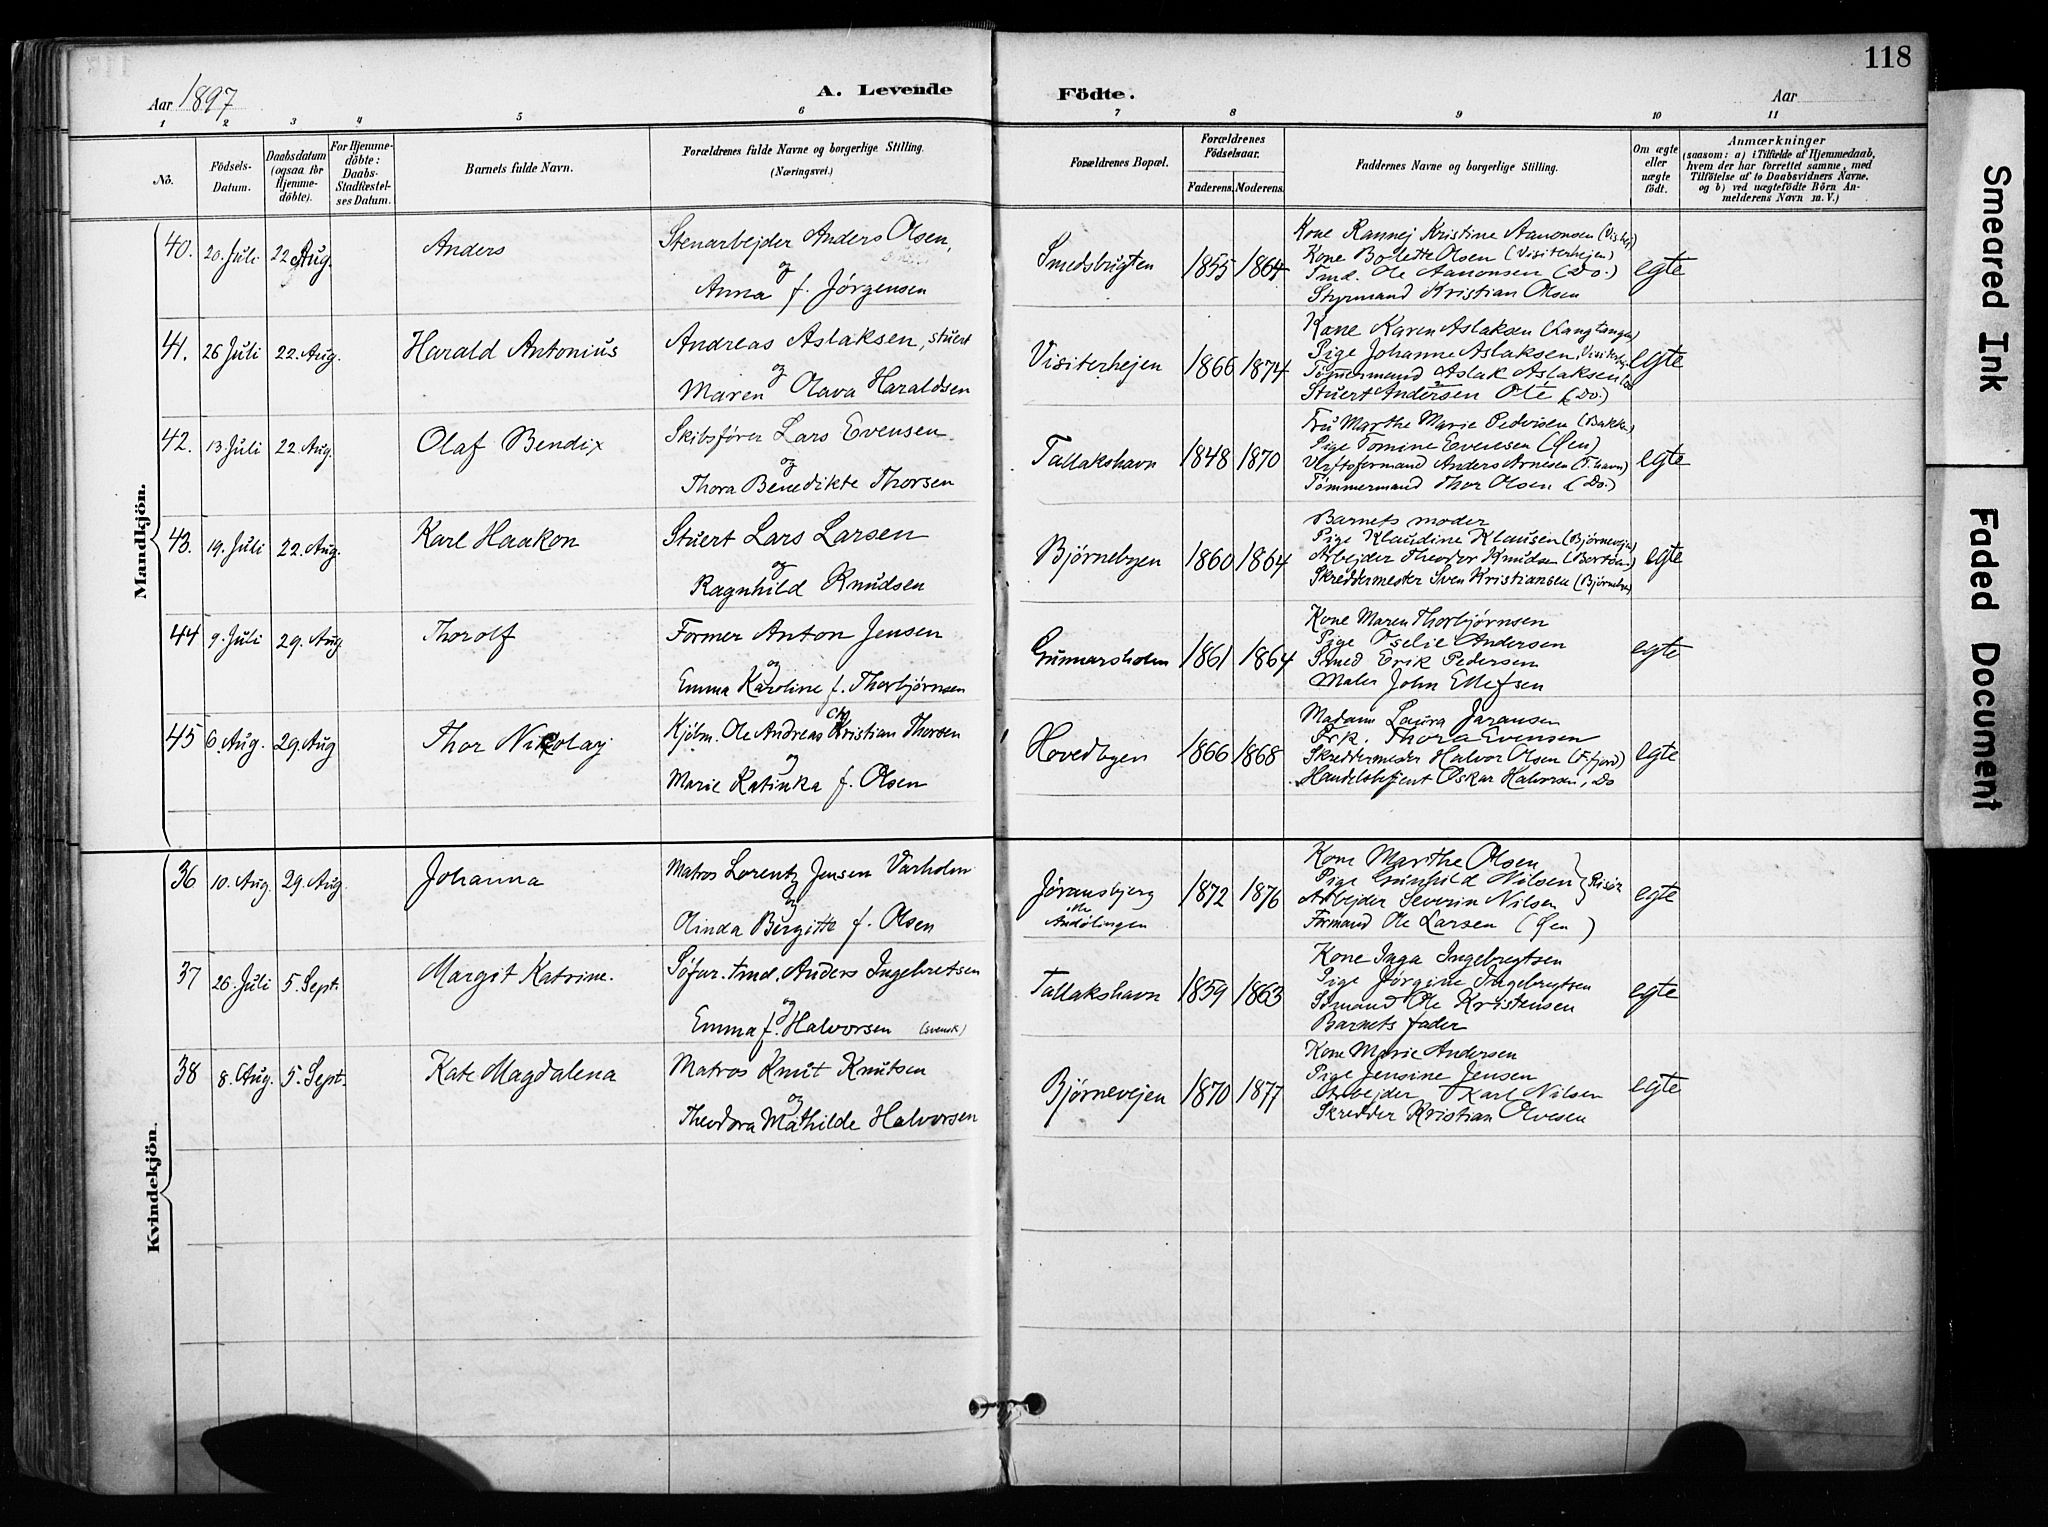 118
Aar 1897
A. Levende Födte.
Aar
1 2 3 4 5 6 7 8 9 10 11
No.
Födsels-Datum.
Daabsdatum (ogsaa for Hjemme-döbte).
For Hjemme-döbte: Daabs-Stadfæstel-ses Datum.
Barnets fulde Navn.
Forældrenes fulde Navne og borgerlige Stilling.
(Næringsvei.)
Forældrenes Bopæl.
Forældrenes Födselsaar.
Faderens. Moderens.
Faddernes Navne og borgerlige Stilling.
Om ægte eller uægte födt.
Anmærkninger
(saasom: a) i Tilfælde af Hjemmedaab,
hvem der har forrettet samme, med
Tilföielse af to Daabsvidners Navne.
og b) ved uægtefödte Börn An-
melderens Navn m. V.)
Mandkjön.
40. 20. Juli 22 Aug. Anders
Stenarbejder Anders Olsen,
og
Anna f. Jørgensen
Smedsbugten 1855 1864
Kone Rannej Kristine Aanonsen
Kone Bolette Olsen (Visiterhejen)
Tmd. Ole Aanonsen (Do.)
Styrmand Kristian Olsen
egte
41. 26 Juli 22. Aug. Harald Antonius
Andreas Aslaksen, stuert
og
Maren Olava Haraldsen
Visiterhejen 1866 1874
Kone Karen Aslaksen (Langtangen)
Pige Johanne Aslaksen
Tömmermand Aslak Aslaksen
Stuert Andersen Ole (Do.)
egte
42. 13. Juli 22 Aug. Olaf Bendix
Skibsfører Lars Evensen
og
Thora Benedikte Thorsen
Tallakshavn 1848 1870
Fru Marthe Marie Pedersen (Bakke)
Pige Tomine Evensen (Øen)
Verftsformand Anders Arnesen (T.havn)
Tömmermand Thor Olsen (Do.)
egte
43. 19. Juli 22. Aug. Karl Haakon
Stuert Lars Larsen
og
Ragnhild Knudsen
Bjørnebyen 1860 1864
Barnets moder
Pige Klaudine Klausen (Bjørnevejen)
Arbejder Theodor Knudsen
Skreddermester Sven Kristiansen
egte
44 9. Juli 29. Aug Thorolf
Former Anton Jensen
og
Emma Karoline f. Thorbjørnsen
Gunnarsholm 1861 1864
Kone Maren Thorbjørnsen
Pige Oselie Andersen
Smed Erik Pedersen
Maler John Ellefsen
egte
45 6. Aug. 29. Aug Thor Nicolay
Kjöbm. Ole Andreas Kristian Thorsen
og
Marie Katinka f. Olsen
Hovedbyen 1866 1868
Madam Laura Jaransen
Frk. Thora Evensen
Skreddermester Halvor Olsen (F.fjord)
Handelsbetjent Oskar Halvorsen, Do
egte
Kvindekjön.
36 10. Aug. 29. Aug. Johanna
Matros Lorentz Jensen Varholm
og
Olinda Birgitte f. Olsen
Jøransbjerg
1872 1876
Kone Marthe Olsen
Pige Gunhild Nilsen } Risør
Arbejder Severin Nilsen
Formand Ole Larsen (Øen)
egte
37 26. Juli 5. Sept. Margit Katrine.
Söfar. tmd. Anders Ingebretsen
og
Emma f. Halvorsen (svensk)
Tallakshavn 1859 1863
Kone Inga Ingebregtsen
Pige Jørgine Ingebregtsen
Sömand Ole Kristensen
Barnets fader
egte
38 8. Aug. 5. Sept. Kate Magdalena
Matros Knut Knutsen
og
Theodora Mathilde Halvorsen
Bjørnevejen 1870 1877
Kone Marie Andersen
Pige Jensine Jensen
Arbejder Karl Nilsen
Skredder Kristian Olvesen
egte
Smeared Ink
Faded Document